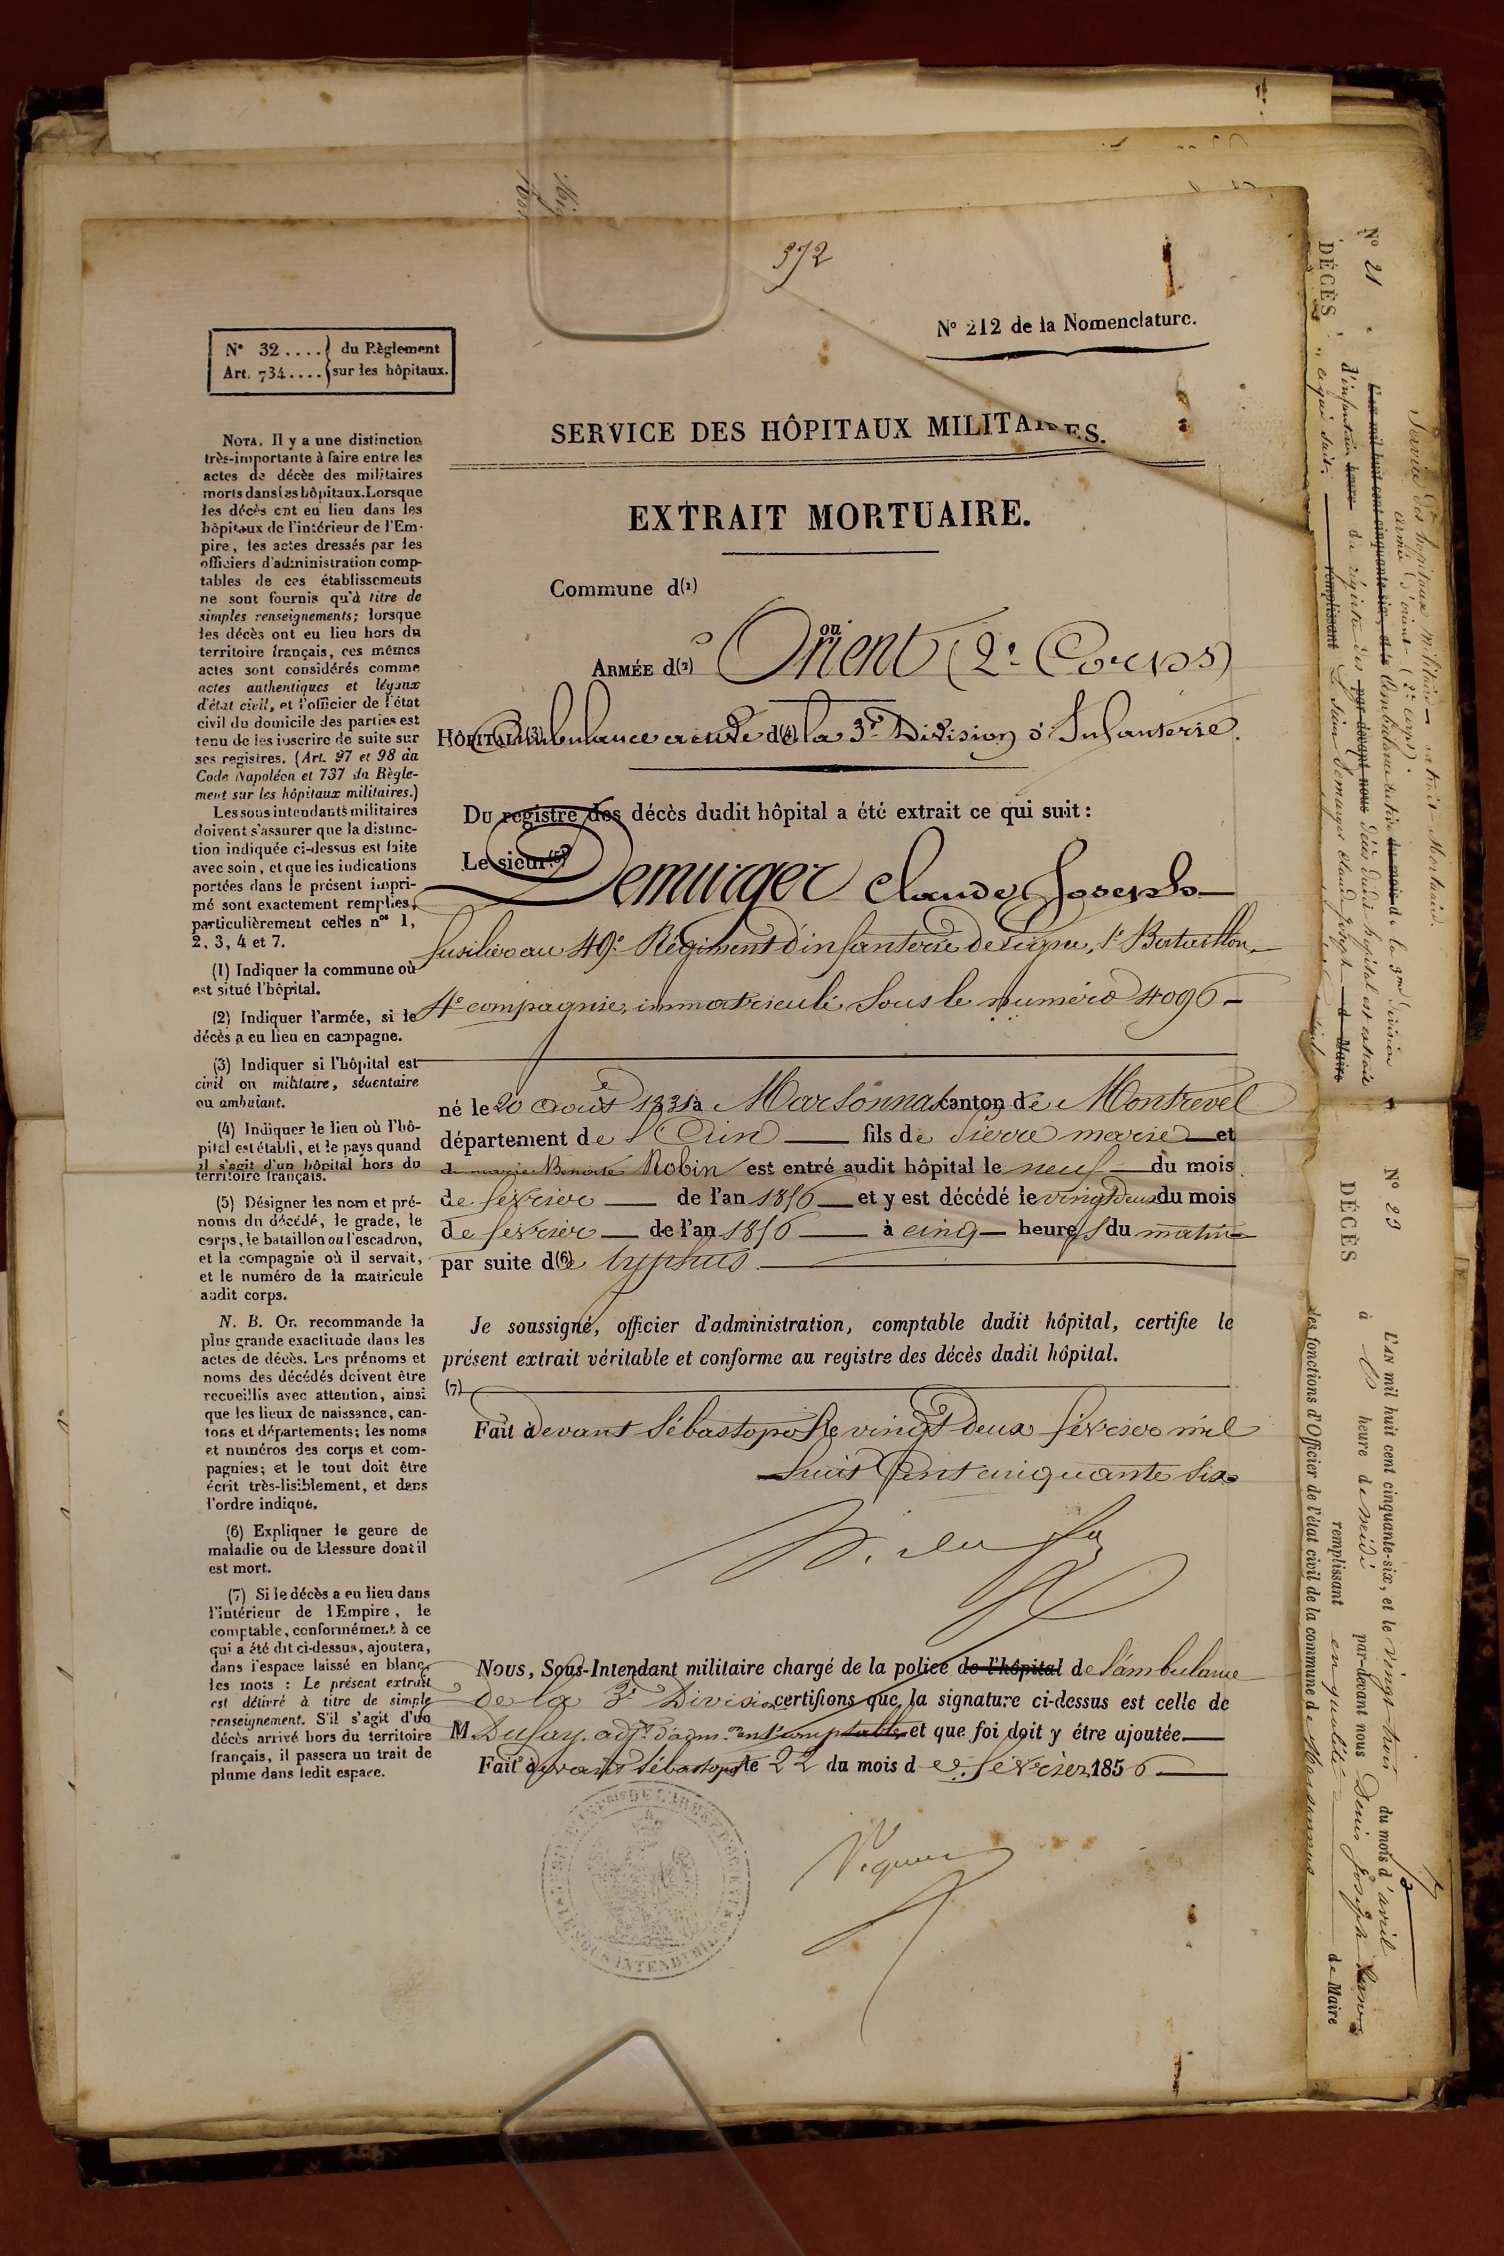 372
N° 212 de la Nomenclature.
N° 32 .... du Règlement
Art. 734 .... sur les hôpitaux.
SERVICE DES HÔPITAUX MILITAIRES.
EXTRAIT MORTUAIRE.
Commune d(1)
ou
ARMÉE d(2) Orient (2e Corps)
HÔPITAL (3) Ambulance active d(4) la 3e Division d'Infanterie.
Du registre des décès dudit hôpital a été extrait ce qui suit :
Le sieur (5) Demurger Claude Joseph
fusilier au 49e Régiment d'infanterie de Ligne, 1er Bataillon
4e compagnie, immatriculé sous le numéro 4096
né le 20 Août 1831 à Marsonnas canton de Montrevel
département de l'Ain fils de Pierre marie et
de marie Benoite Robin est entré audit hôpital le neuf du mois
de février de l'an 1856 et y est décédé le vingt deux du mois
de février de l'an 1856 à cinq heures du matin
par suite d(6)e typhus
Je soussigné, officier d'administration, comptable dudit hôpital, certifie le
présent extrait véritable et conforme au registre des décès dudit hôpital.
(7)
Fait à devant Sébastopol le vingt deux février mil
huit Cent cinquante six
NOUS, Sous-Intendant militaire chargé de la police de l'hôpital de l'ambulance
de la 3e Division certifions que la signature ci-dessus est celle de
M Dufay, adjt d'admon en 1er comptable et que foi doit y être ajoutée
Fait à devant Sébastopol le 22 du mois de février 1856
NOTA. Il y a une distinction
très-importante à faire entre les
actes de décès des militaires
morts dans les hôpitaux. Lorsque
les décès ont eu lieu dans les
hôpitaux de l'intérieur de l'Em-
pire, les actes dressés par les
officiers d'administration comp-
tables de ces établissements
ne sont fournis qu'à titre de
simples renseignements; lorsque
les décès ont eu lieu hors du
territoire français, ces mêmes
actes sont considérés comme
actes authentiques et légaux
d'état civil, et l'officier de l'état
civil du domicile des parties est
tenu de les inscrire de suite sur
ses registres. (Art. 97 et 98 du
Code Napoléon et 737 du Règle-
ment sur les hôpitaux militaires.)
Les sous-intendants militaires
doivent s'assurer que la distinc-
tion indiquée ci-dessus est faite
avec soin, et que les indications
portées dans le présent impri-
mé sont exactement remplies,
particulièrement celles nos 1,
2, 3, 4 et 7.
(1) Indiquer la commune où
est situé l'hôpital.
(2) Indiquer l'armée, si le
décès a eu lieu en campagne.
(3) Indiquer si l'hôpital est
civil ou militaire, sédentaire
ou ambulant.
(4) Indiquer le lieu où l'hô-
pital est établi, et le pays quand
il s'agit d'un hôpital hors du
territoire français.
(5) Désigner les nom et pré-
noms du décédé, le grade, le
corps, le bataillon ou l'escadron,
et la compagnie où il servait,
et le numéro de la matricule
audit corps.
N. B. On recommande la
plus grande exactitude dans les
actes de décès. Les prénoms et
noms des décédés doivent être
recueillis avec attention, ainsi
que les lieux de naissance, can-
tons et départements; les noms
et numéros des corps et com-
pagnies; et le tout doit être
écrit très-lisiblement, et dans
l'ordre indiqué.
(6) Expliquer le genre de
maladie ou de blessure dont il
est mort.
(7) Si le décès a eu lieu dans
l'intérieur de l'Empire, le
comptable, conformément à ce
qui a été dit ci-dessus, ajoutera,
dans l'espace laissé en blanc,
les mots : Le présent extrait
est délivré à titre de simple
renseignement. S'il s'agit d'un
décès arrivé hors du territoire
français, il passera un trait de
plume dans ledit espace.
Service des hôpitaux militaires extrait Mortuaire.
armée d'orient (2e corps)
N° 21
DÉCÈS
L'an mil huit cent cinquante-six, et le ambulance active du mois d de la 3me division
d'infanterie heure du registre des par-devant nous décès dudit hôpital est extrait
ce qui suit: remplissant Le sieur Demurger claude joseph de Maire
N° 23
DÉCÈS
L'AN mil huit cent cinquante-six, et le vingt-huit du mois d'avril
à heure de midi par-devant nous Denis Joseph
remplissant en qualité de Maire
des fonctions d'Officier de l'état civil de la commune de Marsonnas